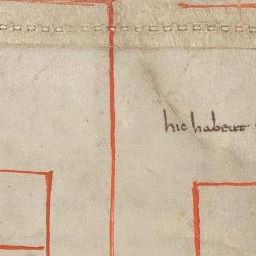 hic habent